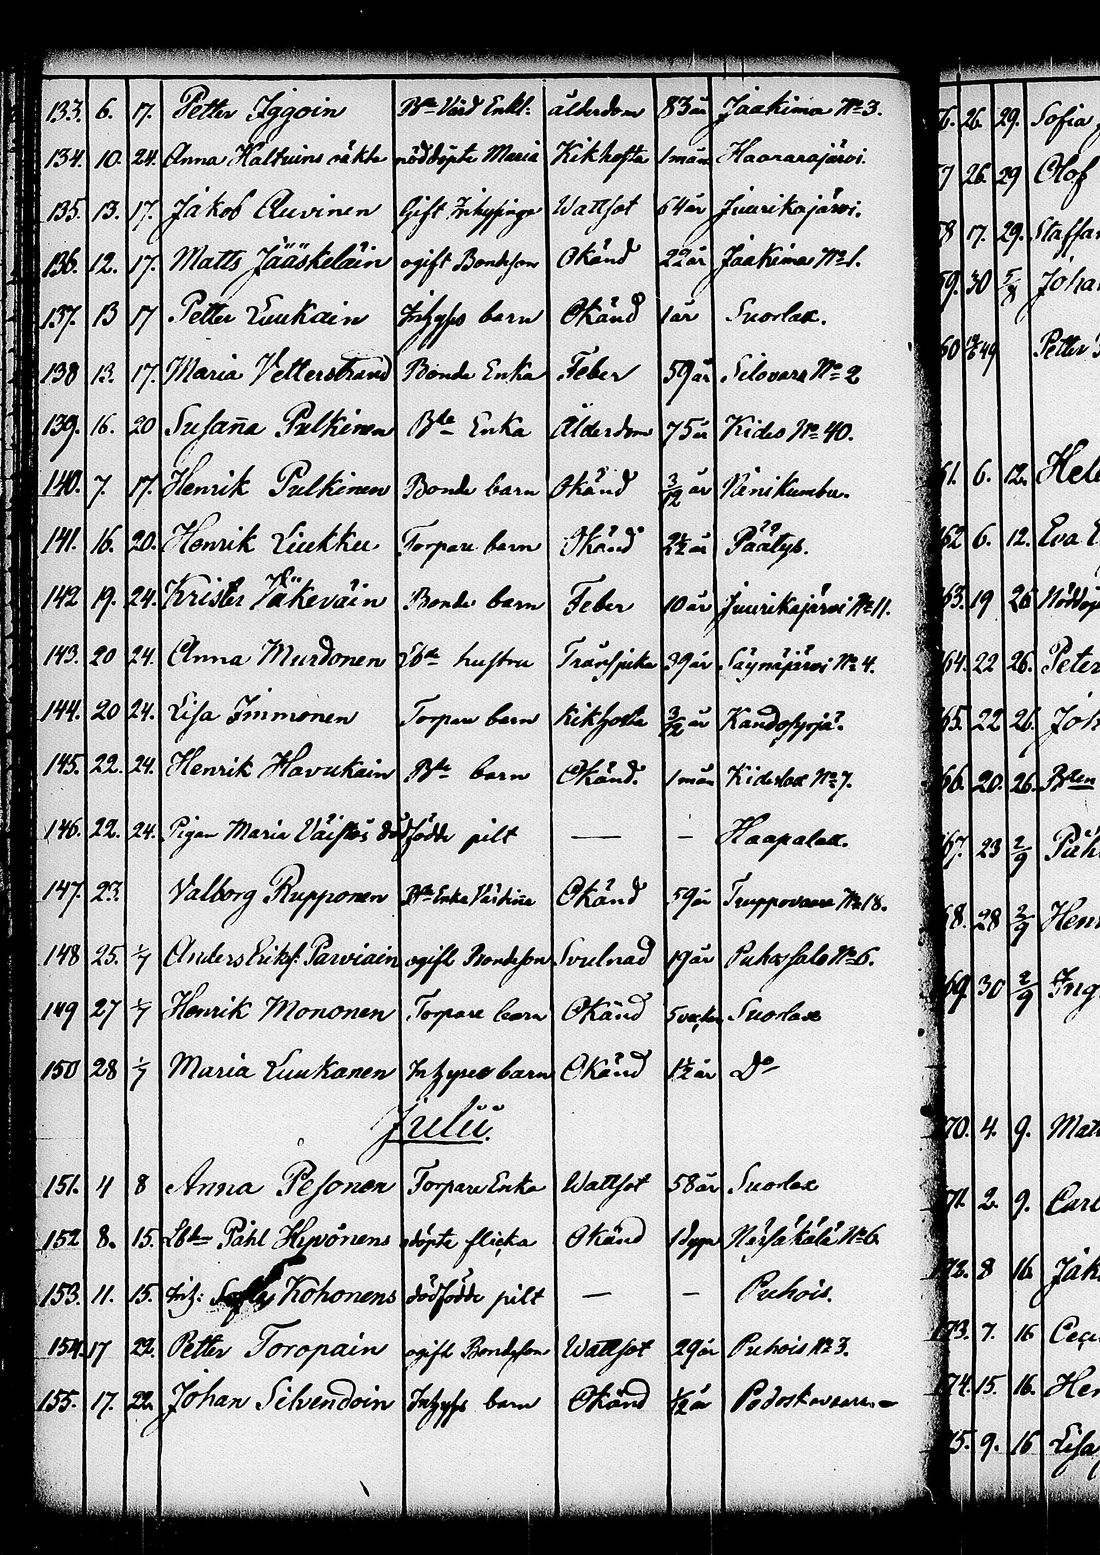 133. 6. 17. Petter Iggoin Bde Värd Enkl. ålderdom 83 år Jaakima No 3.
134. 10. 24. Anna Kaltuins oäkta nöddöpte Maria Kikhosta 1 mån Haararajärvi.
135. 13. 17. Jakob Auvinen Gift Inhysinge Wattsot 64 år Juurikajärvi.
136. 12. 17. Matts Jääskeläin ogift Bondeson Okänd 22 år Jaakima No 1.
137. 13 17 Petter Luukain Inhyses barn Okänd 1 år Suorlax.
138 13. 17. Maria Vetterstrand Bonde Enka Feber 59 år Silovara No 2
139. 16. 20 Susanna Pulkinen Bde Enka Ålderdom 75 år Kides No 40.
140. 7. 17. Henrik Pulkinen Bonde barn Okänd 3/12 år Niinikumbu.
141. 16. 20. Henrik Liukku Torpare barn Okänd 2½ år Päätys.
142 19. 24. Krister Väkeväin Bonde barn Feber 10 år Juurikajärvi No 11.
143. 20 24. Anna Murdonen hustru Trånsjuka 39 år Säynäjärvi No 4.
144. 20 24. Lisa Immonen Torpare barn Kikhosta 3/12 år Kandosyrjä.
145. 22. 24. Henrik Havukain Bde barn Okänd. 1 mån Kideslax No 7.
146. 22. 24. Pigan Maria Väistös dödfödde pilt — — Haapalax.
147. 23. Valborg Rupponen Bde Enka Värdina Okänd 59 år Truppovaara No 18.
148 25. 1/7 Anders Eriks. Parviain ogift Bondeson Svulnad 19 år Puhossalo No 6.
149 27 1/7 Henrik Mononen Torpare barn Okänd 5 veckor Suorlax
150 28 1/7 Maria Luukanen Inhyses barn Okänd 1½ år Do
Julii.
151. 4 8 Anna Pesonen Torpare Enka Wattsot 58 år Suorlax
152 8. 15. Påhl Hyvönens odöpte flicka Okänd 1 dygn Närsäkälä No 6.
153. 11. 15. Inh: Kohonens dödfödde pilt — — Puhois.
154. 17 22. Petter Toropain ogift Bondeson Wattsot 29 år Puhois No 3.
155. 17. 22. Johan Silvendoin Inhyses barn Okänd ½ år Podoskavaara
6. 26. 29. Sofia
7 26. 29 Olof
58 17. 29. Staffan
59. 30 5/8 Johan
60 Petter
61. 6. 12. Hele
162 6. 12. Eva
163. 19 26 Nöddöp
164. 22 26. Peter
165. 22 26. Joh
166. 20. 26. Bden
167. 23 2/9 Påhl
168. 28 2/9 Henr
169. 30 2/9 Ing
170. 4. 9. Mat
171. 2. 9. Carl
172. 8 16. Jak
173. 7. 16 Ceci
174. 15. 16. Hen
175. 9. 16 Lisa